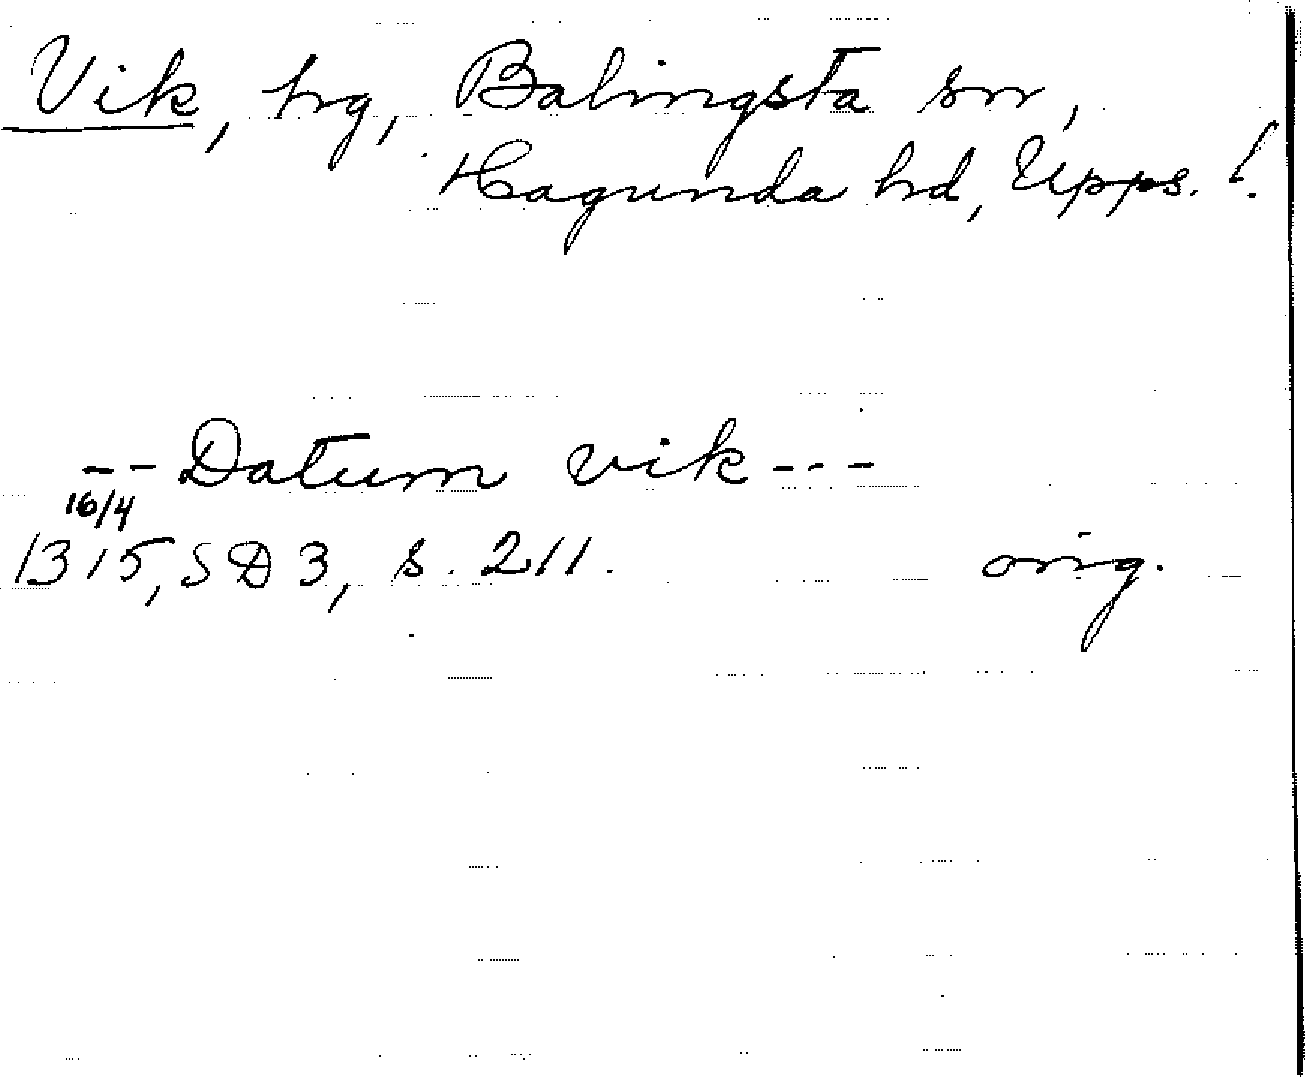 Vik, hg, Balingsta sn,
Hagunda hd, Upps. l.
-- Datum vik ---
16/4
1315, SD 3, s. 211. orig.